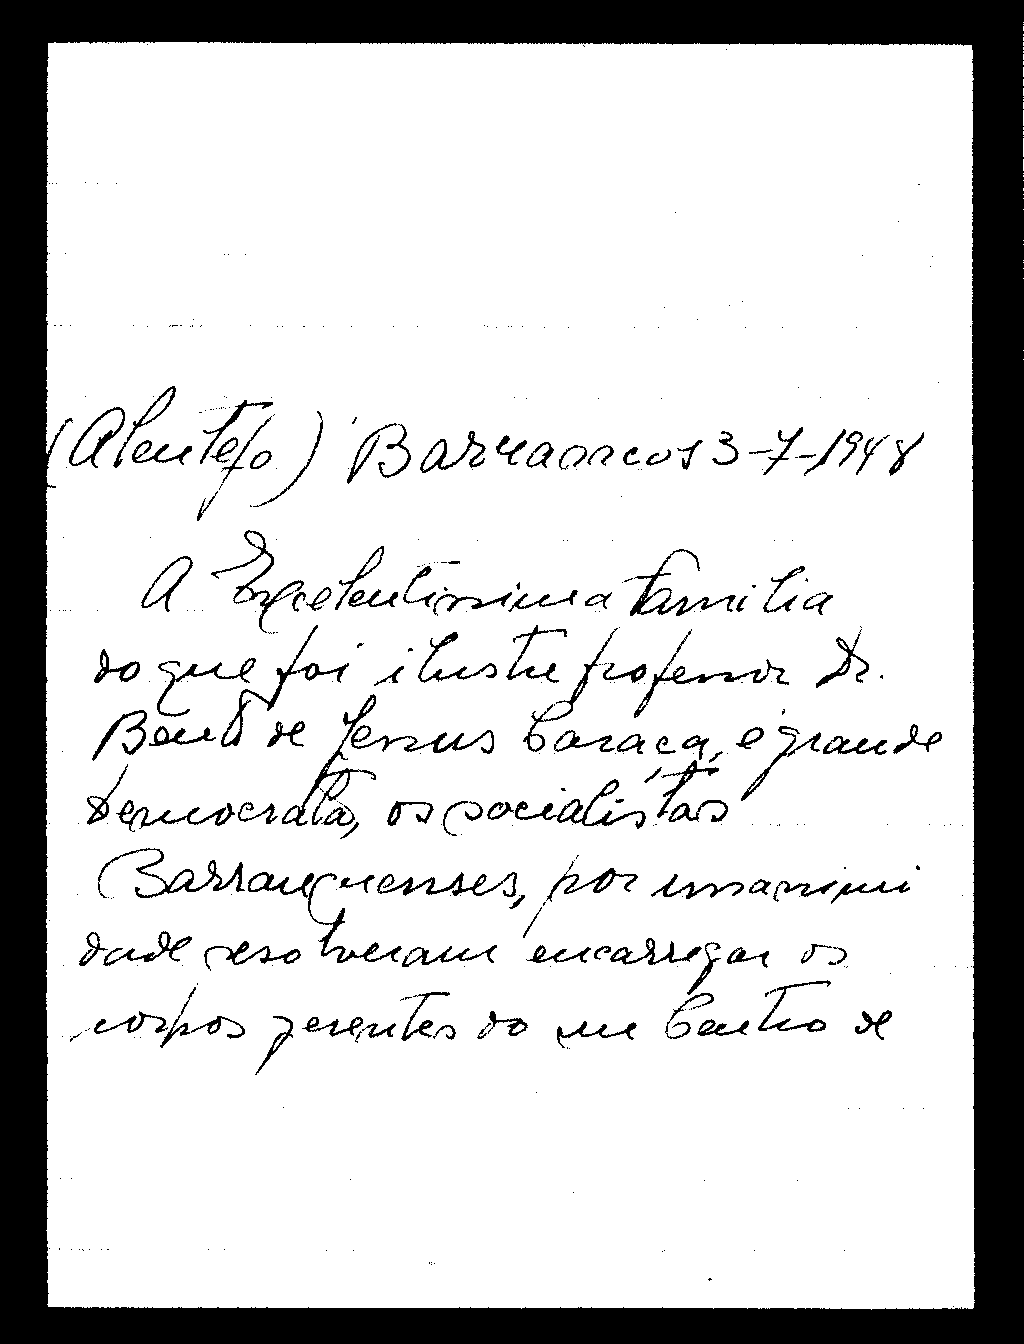 (Alentejo) Barrancos 3-7-1948
A Excelentissima familia
do que foi ilustre professor Dr.
Bento de Jesus Caraça, e grande
Democrata, os socialistas
Barranquenses, por unanimi
dade resolveram encarregar os
corpos gerentes do Centro de